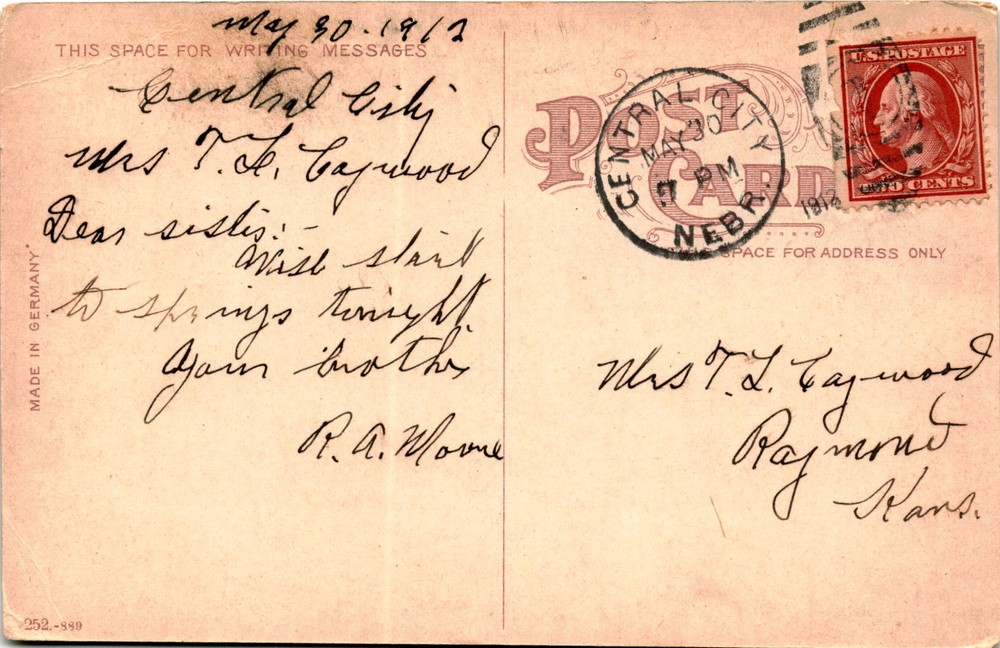 May 30 - 1912
THIS SPACE FOR WRITING MESSAGES
Central City
Mrs T. L. Caywood
Dear sister: -
Will start
to springs tonight
Your brother
R. A. Moore
MADE IN GERMANY
252.-889
POST CARD
CENTRAL CITY
MAY 30
7 PM
1912
NEBR.
U.S. POSTAGE
TWO CENTS
SPACE FOR ADDRESS ONLY
Mrs T. L. Caywood
Raymond
Kans.